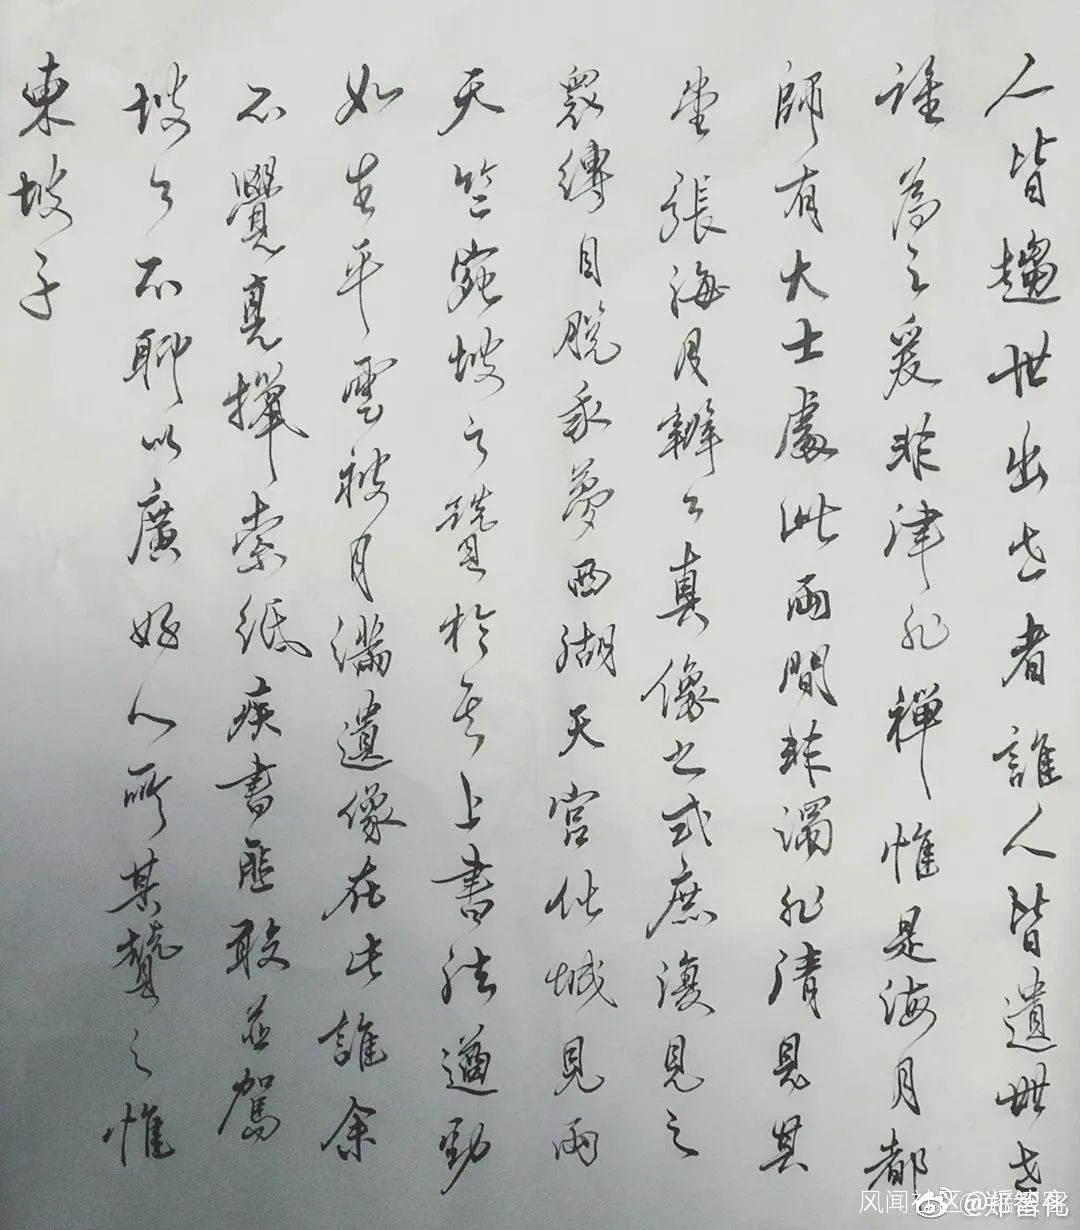 人皆趨世出世者誰人皆遺世世
誰為之爰非津非禪惟是海月都
師有大士處此兩間非濁非清見其
堂張海月辯公真像之式庶復見之
眾縛自脫我夢西湖天宮化城見兩
天竺宛坡之贊於其上書法遒勁
如生平雲披月滿遺像在此誰余
不覺索紙疾書匪敢並駕
坡公不聊以廣好人所其贊之惟
東坡子
风闻社区
@郑智化